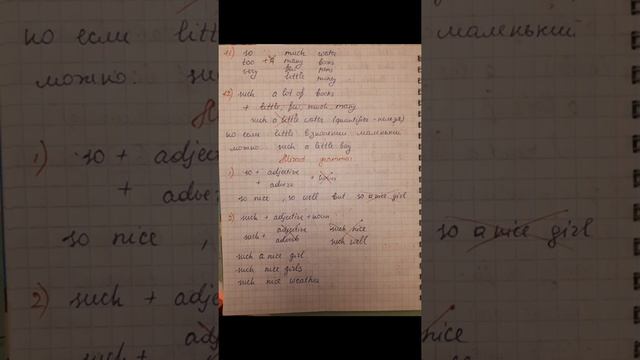 11) so much water
too + many books
very few pens
little money
12) such a lot of books
+ little, few, much many
such a little water (quantifier - нельзя)
но если little в значении маленький
можно such a little boy
Mixed grammar
1) so + adjective
+ adverb + noun
so nice, so well but so a nice girl
2) such + adjective + noun
such + adjective such nice
adverb such well
such a nice girl
such nice girls
such nice weather